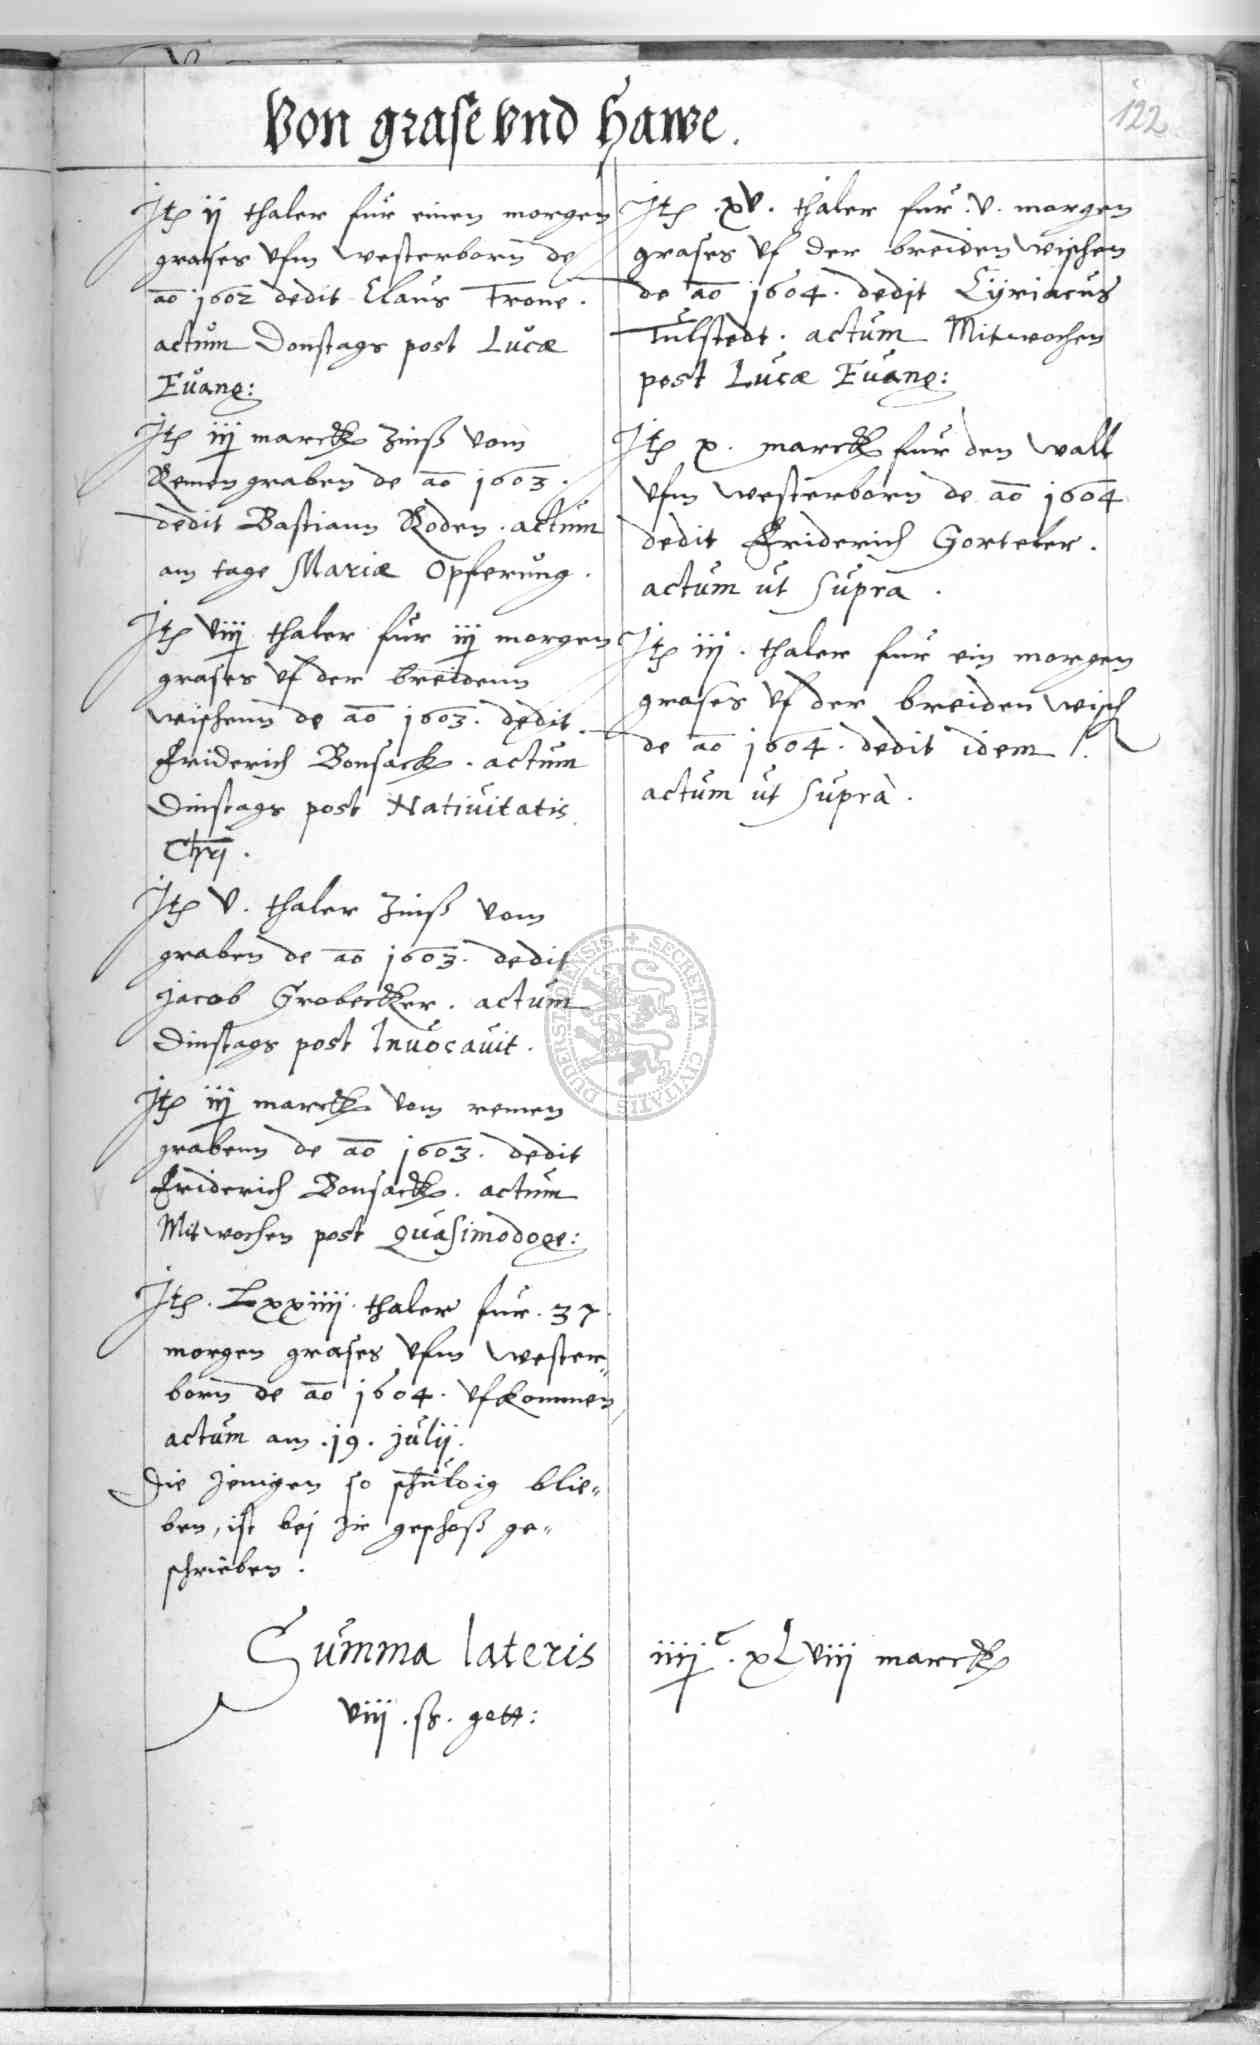 Von grase vnd Hawe.
122
Jtem ij thaler fur einen morgen
grases vfm westerborn de
ao 1602 dedit Claus Trone.
actum Donstags post Lucæ
Euang:
Jtem iij marck Zinß vom
Remen graben de ao 1603.
dedit Bastiann Roden. actum
am tage Mariæ Opferung.
Jtem viij thaler fur iij morgen
grases vf der breidenn
wischenn de ao 1603. dedit
Friderich Bonsack. actum
Dinstags post Natiuitatis
Chri.
Jtem v. thaler Zinß vom
graben de ao 1603. dedit
Jacob Grobecker. actum
Dinstags post Inuocauit.
Jtem iij marck vom remen
grabenn de ao 1603. dedit
Friderich Bonsack. actum
Mitwochen post Quasimodoge:
Jtem. Lxxiiij. thaler fur. 37.
morgen grases vfm wester-
born de ao 1604. vfkommen
actum am. 19. Julij.
Die Jenigen so schuldig blie-
ben, ist bej Jr geschoß ge-
schrieben.
Jtem. xv. thaler fur. v. morgen
grases vf der breiden wischen
de ao 1604. dedit Cyriacus
Tulstedt. actum Mitwochen
post Lucæ Euang:
Jtem x. marck fur den wall
vfm westerborn de ao 1604
dedit Friderich Gorteler.
actum ut supra.
Jtem iij. thaler fur ein morgen
grases vf der breiden wisch
de ao 1604. dedit idem.
actum ut supra.
Summa lateris iiijc. xLviij marck
viij. ß. gott:
SECRETUM CIVITATIS DUDERSTADENSIS